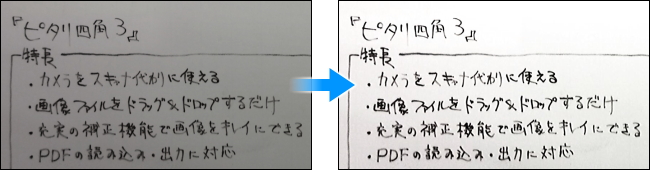 『ピタリ四角3』
特長
・カメラをスキャナ代わりに使える
・画像ファイルをドラッグ&ドロップするだけ
・充実の補正機能で画像をキレイにできる
・PDFの読み込み・出力に対応
『ピタリ四角3』
特長
・カメラをスキャナ代わりに使える
・画像ファイルをドラッグ&ドロップするだけ
・充実の補正機能で画像をキレイにできる
・PDFの読み込み・出力に対応